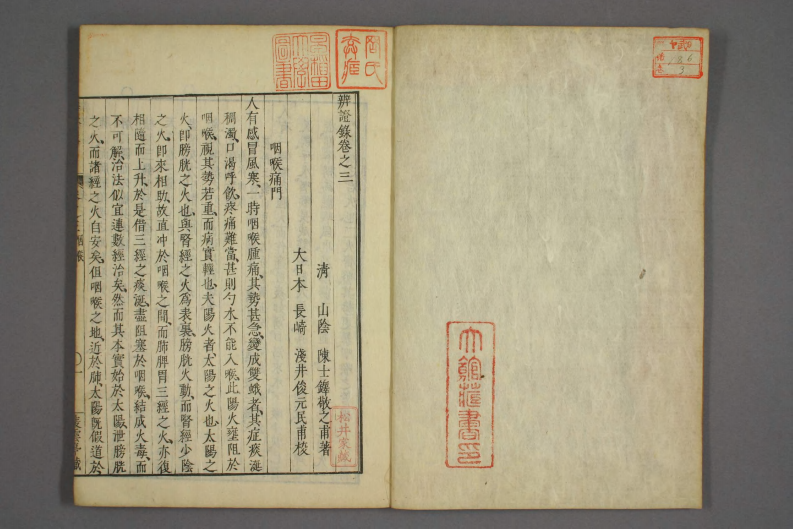 辨證錄卷之三
清 山陰 陳士鐸敬之甫著
大日本 長崎 淺井俊元民甫校
咽喉痛門
人有感冒風寒、一時咽喉腫痛、其勢甚急、變成雙蛾者、其症痰涎
稠濁、口渴呼飲、疼痛難當、甚則勺水不能入喉、此陽火壅阻於
咽喉、視其勢若重、而病實輕也、夫陽火者、太陽之火也、太陽之
火、卽膀胱之火也、與腎經之火爲表裏、膀胱火動、而腎經少陰
之火、卽來相助、故直冲於咽喉之間、而肺脾胃三經之火、亦復
相隨而上升、於是借三經之痰涎、盡阻塞於咽喉、結成火毒、而
不可解、治法似宜連數經治矣、然而其本實始於太陽、泄膀胱
之火、而諸經之火自安矣、但咽喉之地、近於肺、太陽旣假道於
松井家藏